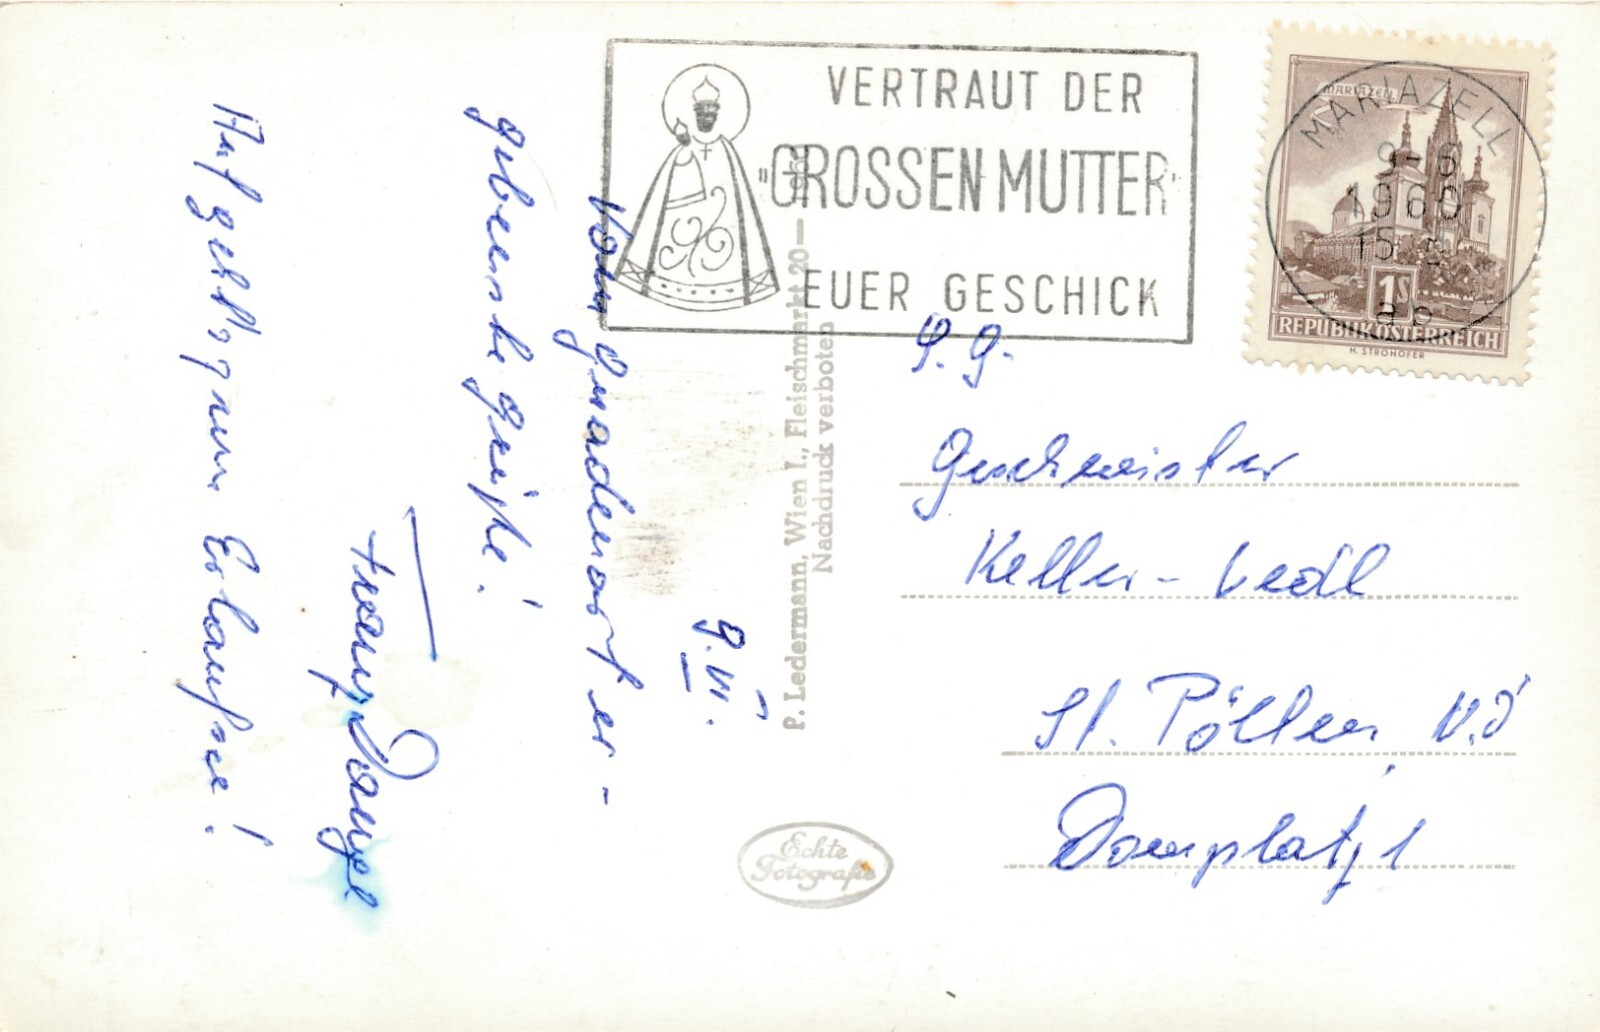 VERTRAUT DER
"GROSSEN MUTTER"
EUER GESCHICK
MARIAZELL
MARIAZELL
9-6
1960
15
1S
REPUBLIK ÖSTERREICH
H. STROHOFER
9. VI.
Vom Gnadenort er-
gebenste Grüße!
Franz
Auf geht's zum Erlaufsee!
P. Ledermann, Wien I., Fleischmarkt 20—
Nachdruck verboten
Echte
Fotografie
Geschwister
Keller-Vedl
St. Pölten N.Ö
Domplatz 1